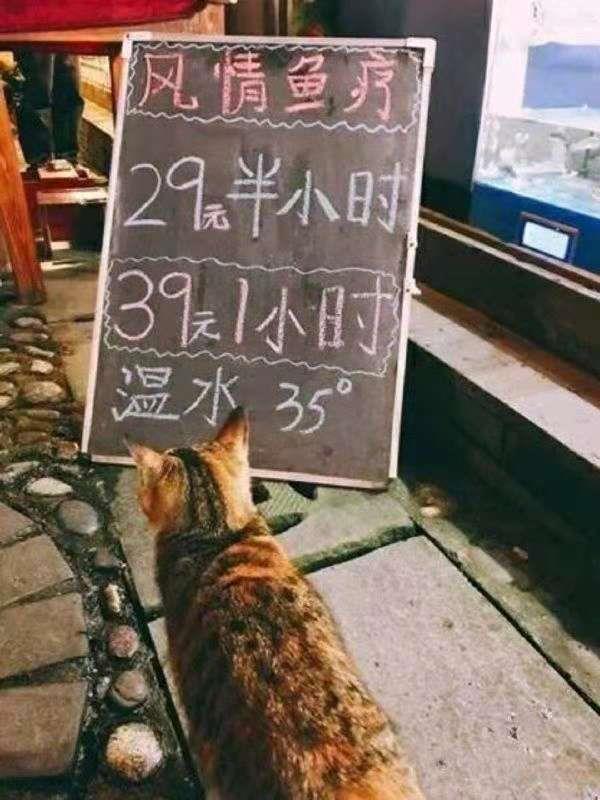 风情鱼疗
29元半小时
39元1小时
温水 35°